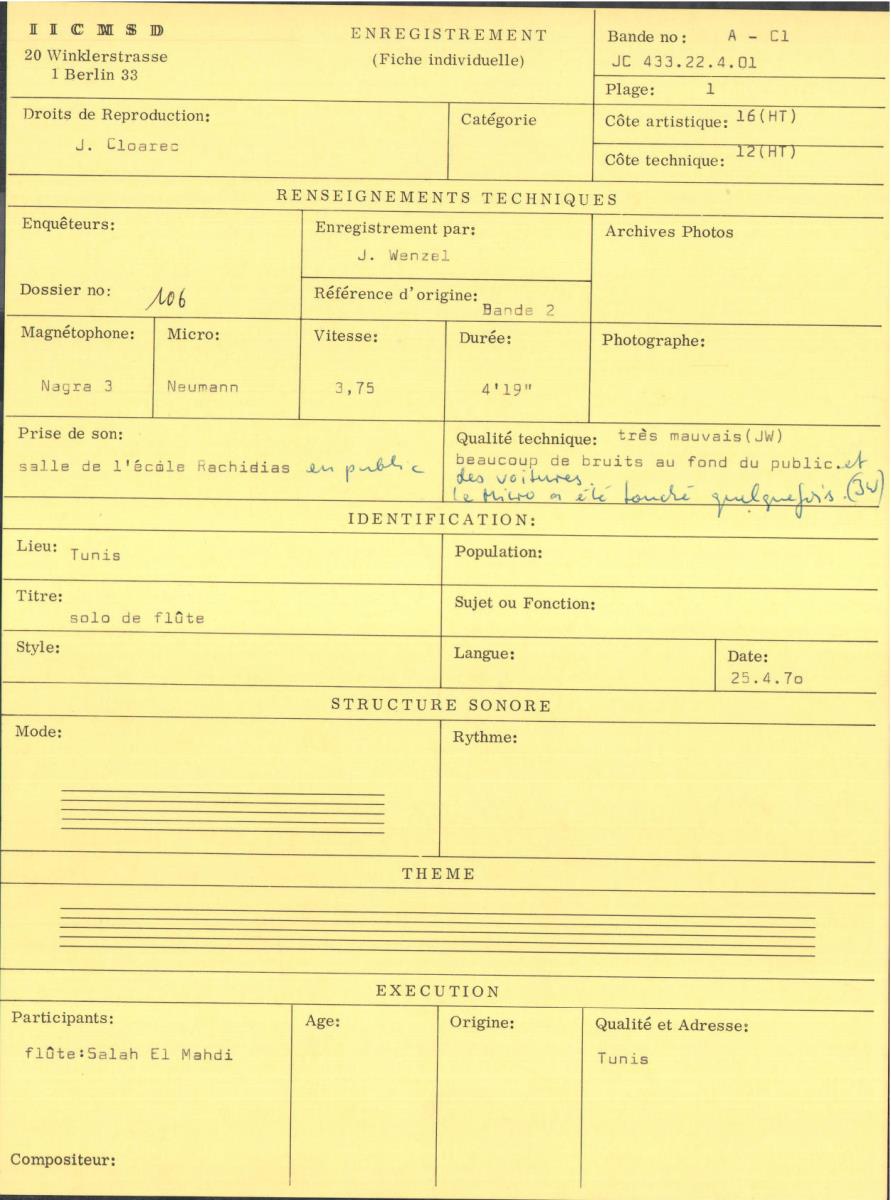 IICMSD
20 Winklerstrasse
1 Berlin 33
ENREGISTREMENT
(Fiche individuelle)
Bande no: A - Cl
JC 433.22.4.01
Plage: 1
Droits de Reproduction:
J. Cloarec
Catégorie
Côte artistique: 16(HT)
Côte technique: 12(HT)
RENSEIGNEMENTS TECHNIQUES
Enquêteurs:
Dossier no: 106
Enregistrement par:
J. Wenzel
Référence d'origine:
Bande 2
Archives Photos
Magnétophone:
Nagra 3
Micro:
Neumann
Vitesse:
3,75
Durée:
4'19"
Photographe:
Prise de son:
salle de l'école Rachidias en public
Qualité technique: très mauvais(JW)
beaucoup de bruits au fond du public. et
des voitures.
le Micro a été touché quelquefois. (JW)
IDENTIFICATION:
Lieu: Tunis
Population:
Titre:
solo de flûte
Sujet ou Fonction:
Style:
Langue:
Date:
25.4.7o
STRUCTURE SONORE
Mode:
Rythme:
THEME
EXECUTION
Participants:
flûte:Salah El Mahdi
Age:
Origine:
Qualité et Adresse:
Tunis
Compositeur: